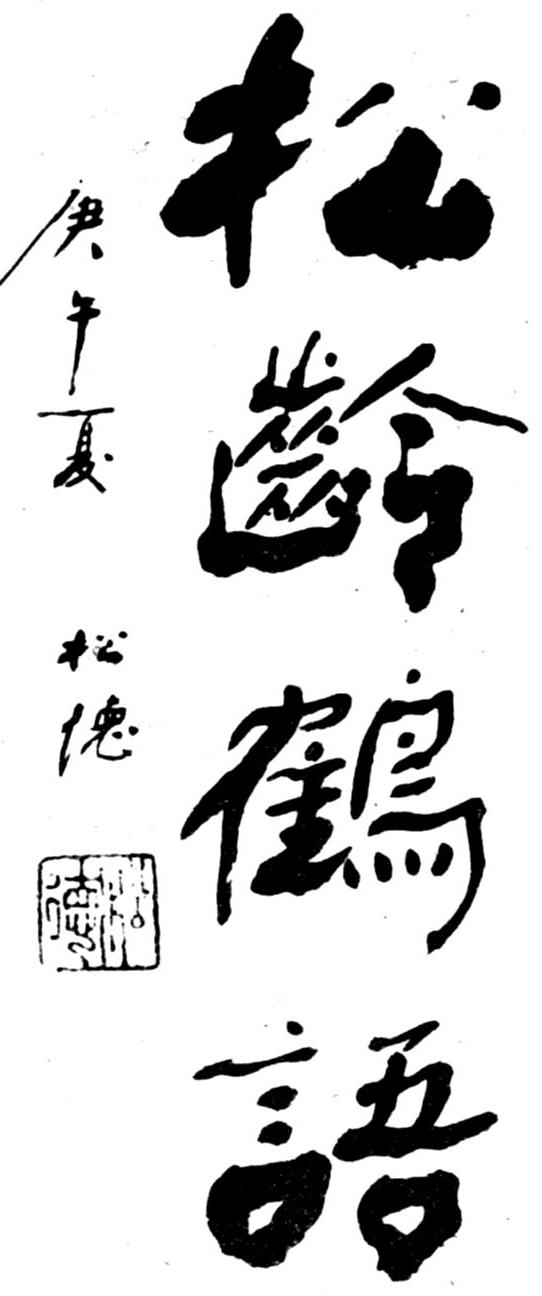 松齡鶴語
庚午夏 松德
松德